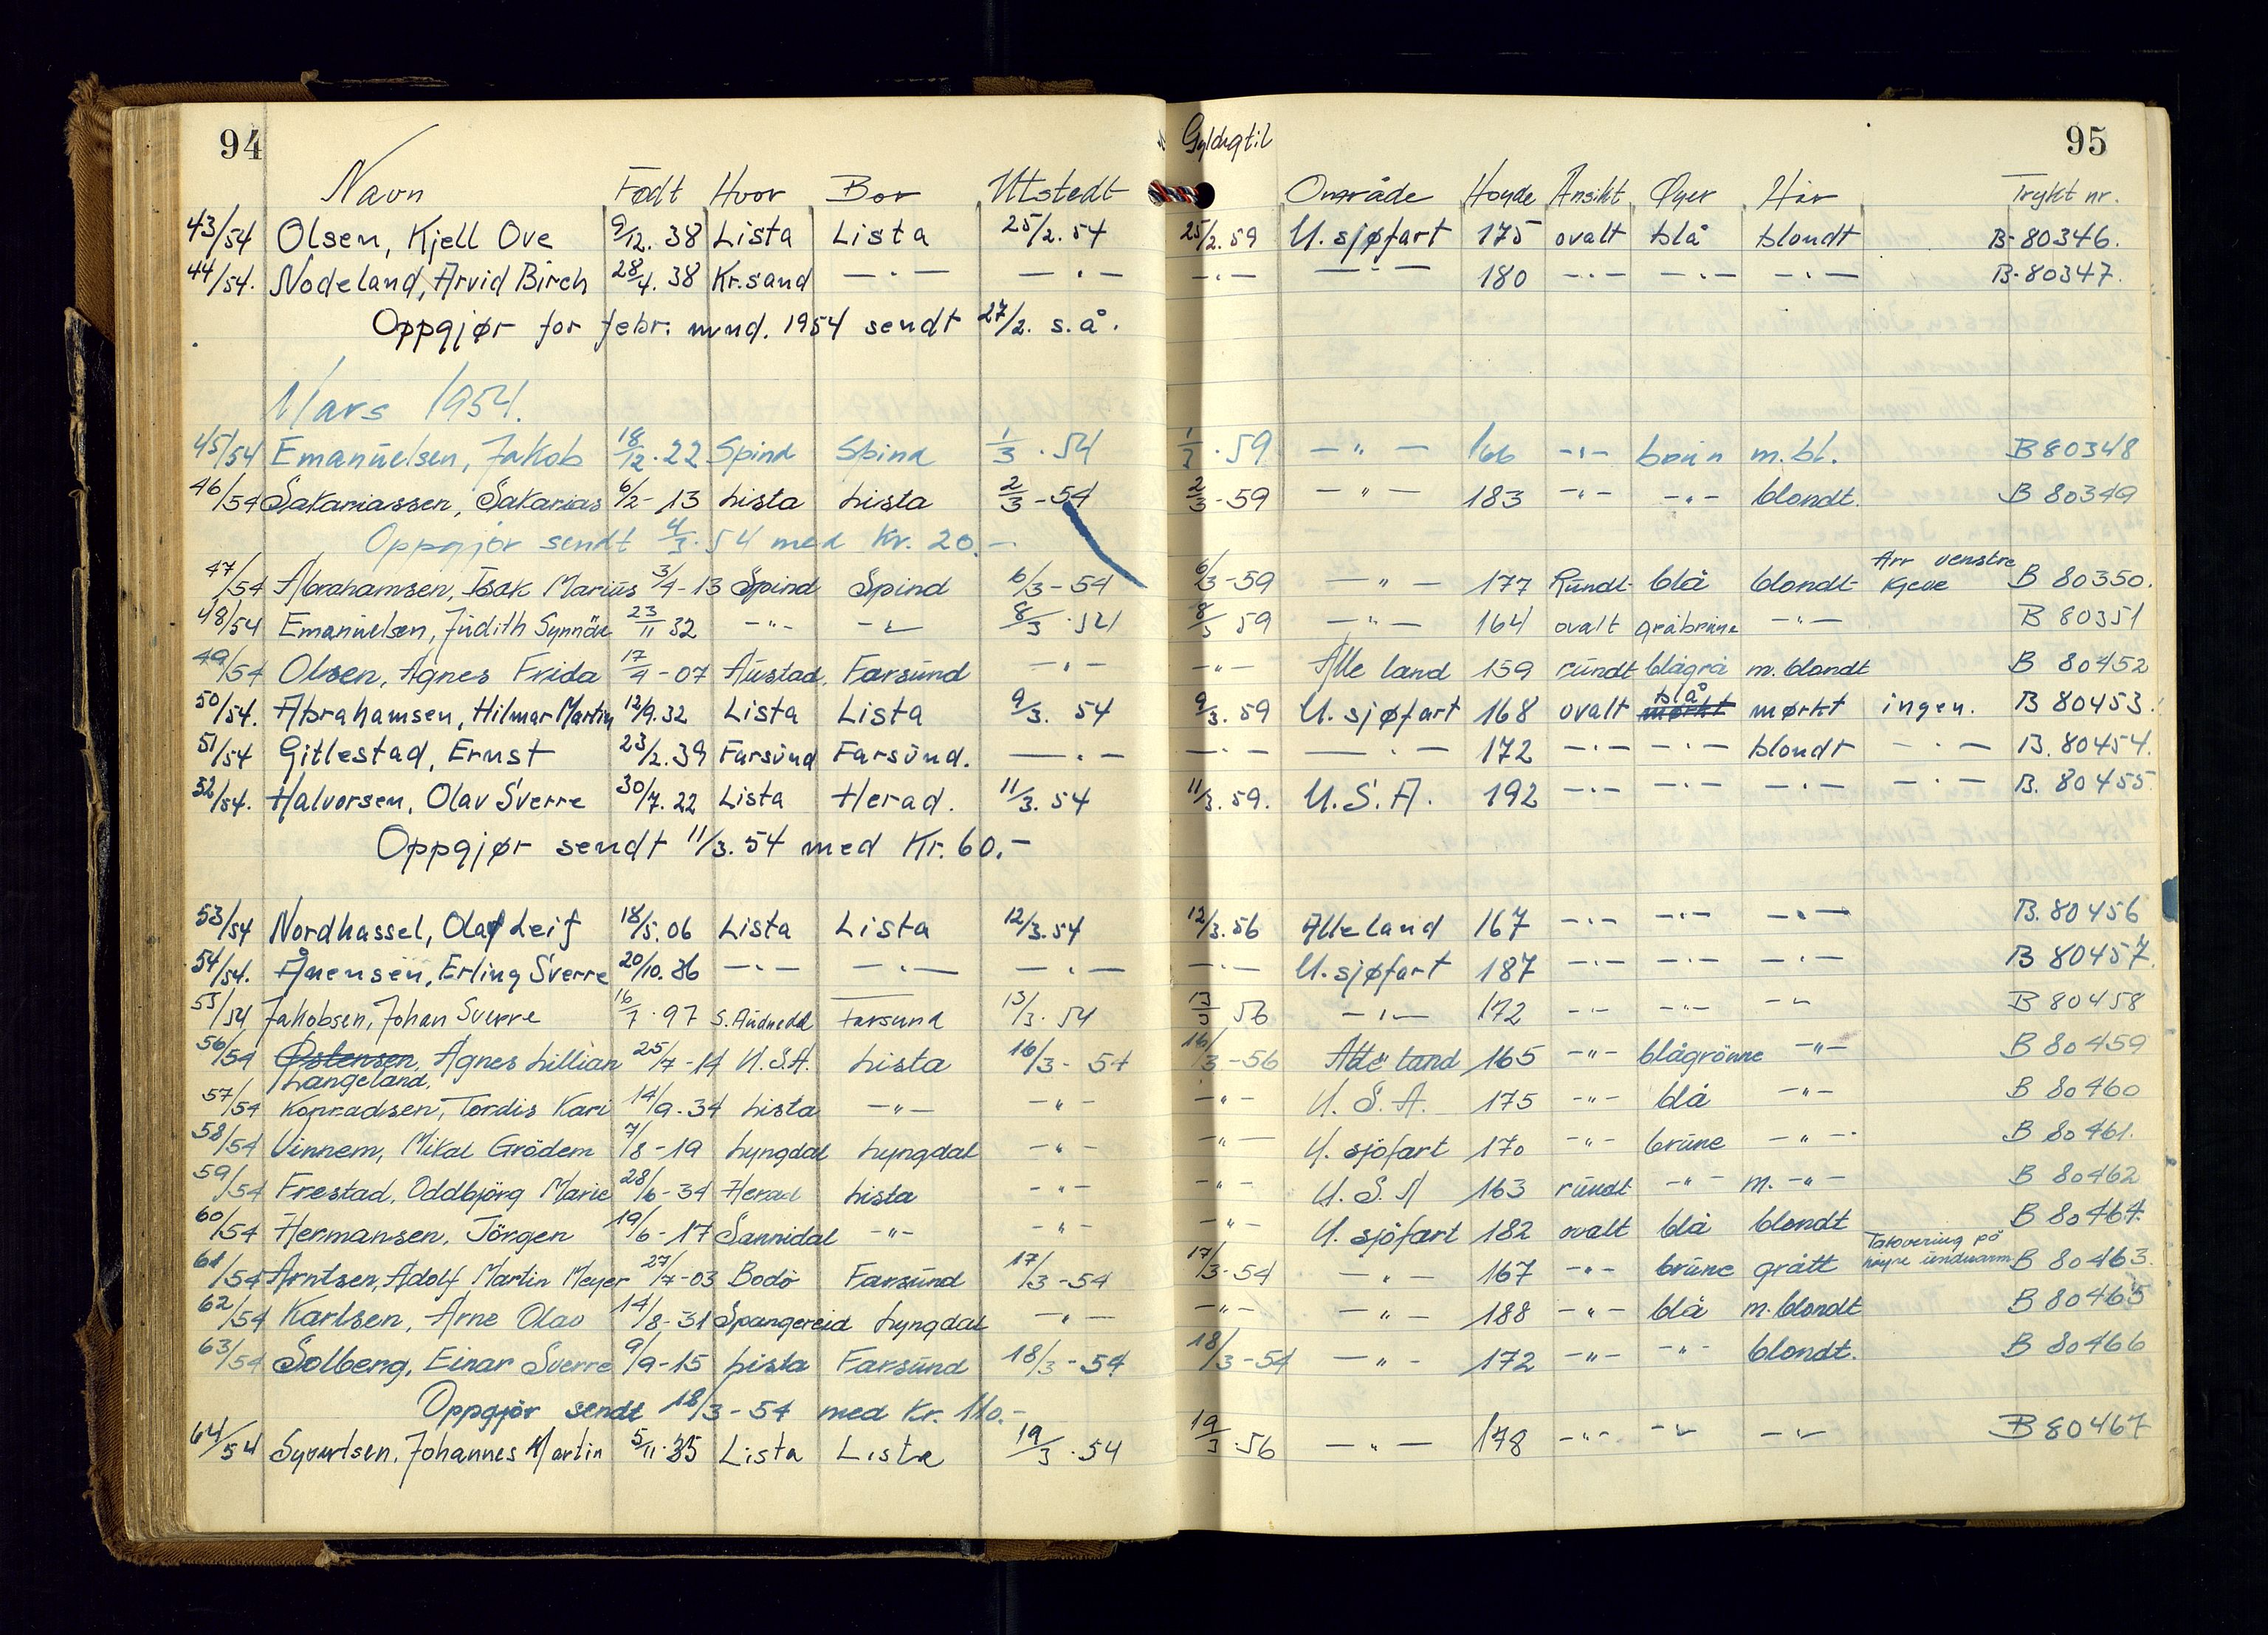 94
95
Gyldig til
Navn Født Hvor Bor Utstedt Område Høyde Ansikt Øyer Hår Trykt nr.
43/54 Olsen, Kjell Ove 9/12. 38 Lista Lista 25/2. 54 25/2. 59 U. sjøfart 175 ovalt blå blondt B-80346.
44/54. Nodeland, Arvid Birch 28/4. 38 Kr.sand —"— —"— —"— —"— 180 —"— —"— —"— B-80347.
Oppgjør for febr. mnd. 1954 sendt 27/2. s.å.
Mars 1954.
45/54 Emanuelsen, Jakob 18/12. 22 Spind Spind 1/3. 54 1/3. 59 —"— 166 —"— brun m.bl. B 80348
46/54 Sakariassen, Sakarias 6/2- 13 Lista Lista 2/3-54 2/3-59 —"— 183 —"— —"— blondt. B 80349
Oppgjør sendt 4/3. 54 med Kr. 20.-
47/54 Abrahamsen, Isak Marius 3/4-13 Spind Spind 6/3-54 6/3-59 —"— 177 Rundt blå blondt Arr venstre kjeve B 80350.
48/54 Emanuelsen, Judith Synnöve 23/11 32 —"— —"— 8/3. 54 8/3 59 —"— 164 ovalt gråbrune —"— B 80351
49/54 Olsen, Agnes Frida 17/4-07 Austad, Farsund —"— —"— Alle land 159 rundt blågrå m. blondt B 80452
50/54. Abrahamsen, Hilmar Martin 12/9. 32 Lista Lista 9/3. 54 9/3. 59 U. sjøfart 168 ovalt mørkt blå mørkt ingen. B 80453.
51/54 Gitlestad, Ernst 23/2. 39 Farsund Farsund. —"— —"— —"— 172 —"— —"— blondt —"— B. 80454.
52/54. Halvorsen, Olav Sverre 30/7. 22 Lista Herad. 11/3. 54 11/3. 59. U.S.A. 192 —"— —"— —"— —"— B. 80455.
Oppgjør sendt 11/3. 54 med Kr. 60.-
53/54 Nordhassel, Olaf Leif 18/5. 06 Lista Lista 12/3. 54 12/3. 56 Alle land 167 —"— —"— —"— B. 80456
54/54. Ånensen, Erling Sverre 20/10. 36 —"— —"— —"— —"— U. sjøfart 187 —"— —"— —"— B 80457.
55/54 Jakobsen, Johan Sverre 16/7. 97 S. Audnedal Farsund 13/3. 54 13/3 56 —"— 172 —"— —"— —"— B 80458
56/54 Østensen, Agnes Lillian 25/7-14 U.S.A. Lista 16/3-54 16/3-56 Alle land 165 —"— blågrönne —"— B 80459
Langeland.
57/54 Konradsen, Tordis Kari 14/9-34 Lista —"— —"— —"— U.S.A. 175 —"— blå —"— B 80460
58/54 Vinnem, Mikal Grödem 7/8-19 Lyngdal Lyngdal —"— —"— U. sjöfart 170 —"— brune —"— B 80461.
59/54 Frestad, Oddbjörg Marie 28/6-34 Herad Lista —"— —"— U.S.A 163 rundt —"— m. —"— B 80462
60/54 Hermansen, Jörgen 19/6-17 Sannidal —"— —"— —"— U. sjöfart 182 ovalt blå blondt B 80464.
61/54 Arntsen, Adolf Martin Meyer 27/7-03 Bodö Farsund 17/3-54 17/3-54 —"— 167 —"— brune grått Tatovering på höyre underarm B 80463.
62/54 Karlsen, Arne Olav 14/8-31 Spangereid Lyngdal —"— —"— —"— 188 —"— blå m. blondt B 80465
63/54 Solberg, Einar Sverre 9/9-15 Lista Farsund 18/3-54 18/3-54 —"— 172 —"— —"— blondt. B 80466
Oppgjör sendt 18/3-54 med Kr. 110.-
64/54 Syvertsen, Johannes Martin 5/11. 35 Lista Lista 19/3. 54 19/3. 56 —"— 178 —"— —"— —"— B 80467